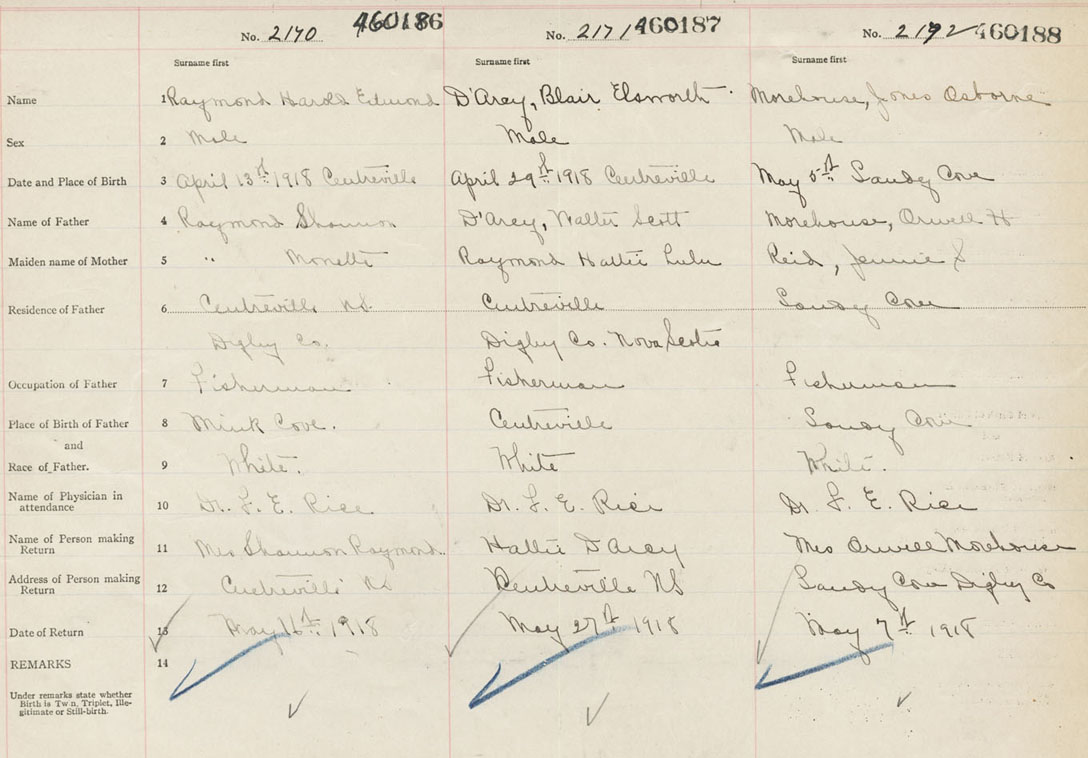 No. 2170 460186 No. 2171 460187 No. 2172 460188
Surname first Surname first Surname first
Name 1 Raymond Harold Edmond D'Arcy, Blair Elsworth Morehouse, Jones Osborne
Sex 2 Male Male Male
Date and Place of Birth 3 April 13th 1918 Centreville April 29th 1918 Centreville May 5th Sandy Cove
Name of Father 4 Raymond Shannon D'Arcy, Walter Scott Morehouse, Orwell H
Maiden name of Mother 5 " Monette Raymond Hattie Lulu Reid, Jennie S
Residence of Father 6 Centreville NS. Centreville Sandy Cove
Digby Co. Digby Co. Nova Scotia
Occupation of Father 7 Fisherman Fisherman Fisherman
Place of Birth of Father 8 Mink Cove. Centreville Sandy Cove
and
Race of Father. 9 White. White White.
Name of Physician in
attendance 10 Dr. F. E. Rice Dr. F. E. Rice Dr. F. E. Rice
Name of Person making
Return 11 Mrs Shannon Raymond. Hattie D'Arcy Mrs Orwell Morehouse
Address of Person making
Return 12 Centreville NS Centreville NS Sandy Cove Digby Co
Date of Return 13 May 16th 1918 May 27th 1918 May 7th 1918
REMARKS 14
Under remarks state whether
Birth is Twin, Triplet, Ille-
gitimate or Still-birth.